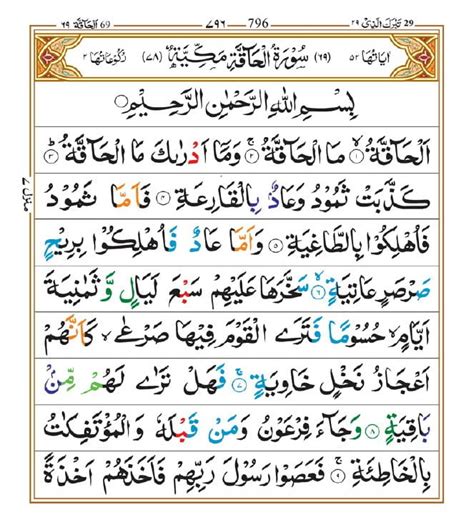 ٦٩ اَلْحَآقَّة 69 ٧٩٦ 796 ٢٩ تَبٰرَكَ الَّذِىْ 29
اٰيَاتُهَا ٥٢ (٦٩) سُوْرَةُ الْحَآقَّةِ مَكِّيَّةٌ (٧٨) رُكُوْعَاتُهَا ٢
بِسْمِ اللّٰهِ الرَّحْمٰنِ الرَّحِيْمِ
اَلْحَآقَّةُ ۙ‏﴿۱﴾ مَا الْحَآقَّةُ ۚ‏﴿۲﴾ وَمَاۤ اَدْرٰىكَ مَا الْحَآقَّةُ ؕ‏﴿۳﴾
كَذَّبَتْ ثَمُوْدُ وَعَادٌۢ بِالْقَارِعَةِ ﴿۴﴾ فَاَمَّا ثَمُوْدُ
فَاُهْلِكُوْا بِالطَّاغِيَةِ ﴿۵﴾ وَاَمَّا عَادٌ فَاُهْلِكُوْا بِرِيْحٍ
صَرْصَرٍ عَاتِيَةٍ ۙ‏﴿۶﴾ سَخَّرَهَا عَلَيْهِمْ سَبْعَ لَيَالٍ وَّ ثَمٰنِيَةَ
اَيَّامٍ ۙ حُسُوْمًا فَتَرَى الْقَوْمَ فِيْهَا صَرْعٰى ۙ كَاَنَّهُمْ
اَعْجَازُ نَخْلٍ خَاوِيَةٍ ۚ‏﴿۷﴾ فَهَلْ تَرٰى لَهُمْ مِّنْۢ
بَاقِيَةٍ ﴿۸﴾ وَجَآءَ فِرْعَوْنُ وَمَنْ قَبْلَهٗ وَالْمُؤْتَفِكٰتُ
بِالْخَاطِئَةِ ۚ‏﴿۹﴾ فَعَصَوْا رَسُوْلَ رَبِّهِمْ فَاَخَذَهُمْ اَخْذَةً
منزل ٧